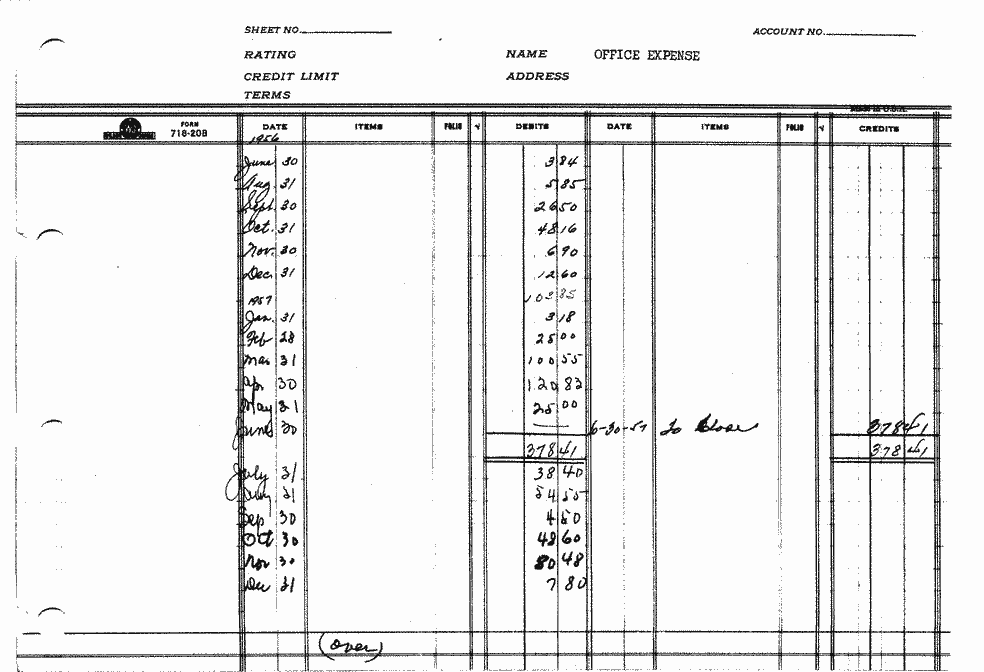 SHEET NO. ACCOUNT NO.
RATING NAME OFFICE EXPENSE
CREDIT LIMIT ADDRESS
TERMS
FORM
718-20B DATE ITEMS FOLIO √ DEBITS DATE ITEMS FOLIO √ CREDITS
1956
June 30 3 84
Aug. 31 5 85
Sept. 30 26 50
Oct. 31 48 16
Nov. 30 6 90
Dec. 31 12 60
1957 103 85
Jan. 31 3 18
Feb 28 25 00
Mar 31 100 55
Apr 30 120 83
May 31 25 00
June 30 6-30-57 To Close 378 41
378 41 378 41
July 31 38 40
Aug 31 54 55
Sep 30 4 50
Oct 30 48 60
Nov 30 80 48
Dec 31 7 80
(over)